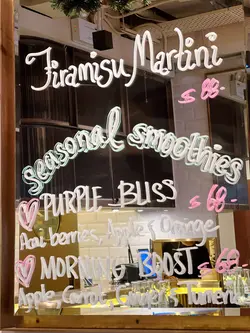 Tiramisu Martini
$ 88-
seasonal smoothies
PURPLE BLISS $ 68-
Acai berries, Apple & Orange
MORNING BOOST $ 68-
Apple, Carrot, Ginger & Turmeric